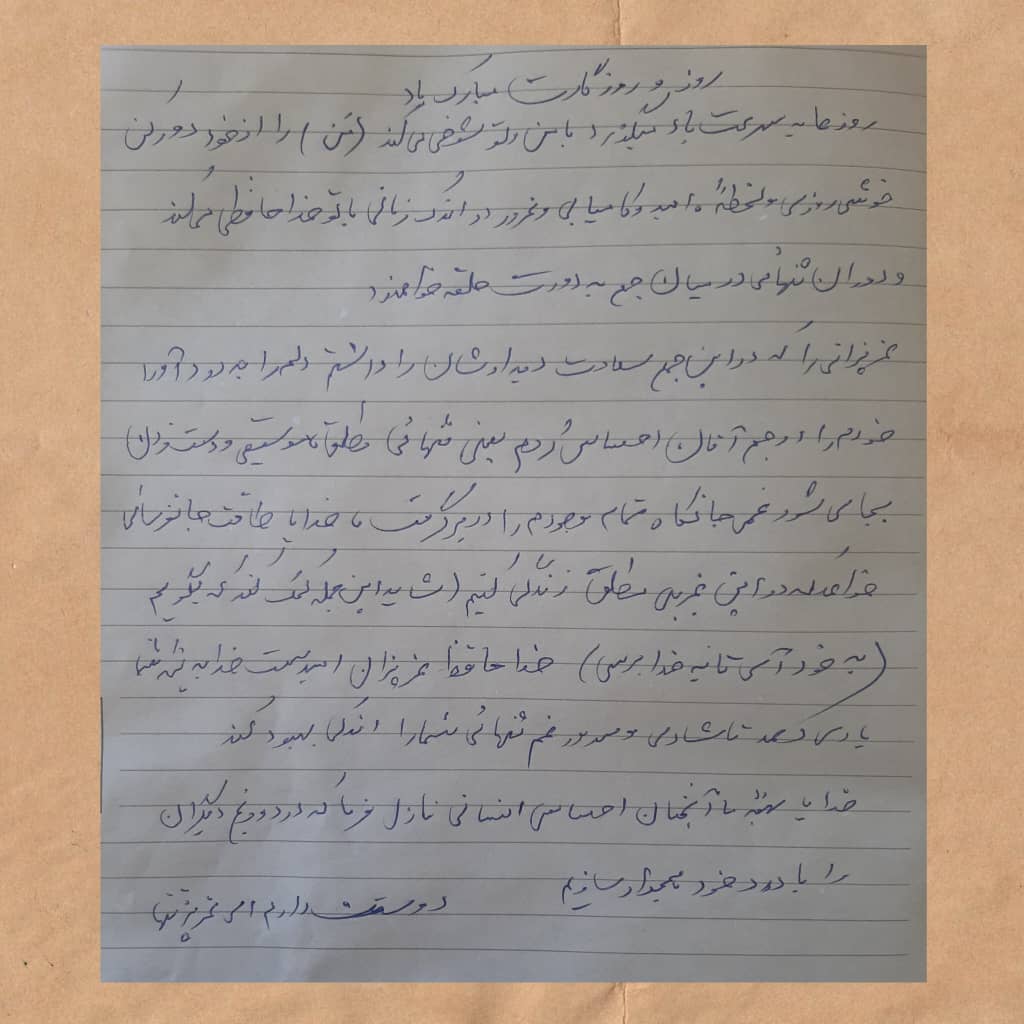 روز و روزگارت مبارک باد
روزها به سرعت باد میگذرد با من و تو شوخی می کند (تن) را از خود دور کن
خوشی روزی و لحظهٔ امید و کامیابی و غرور در اندک زمانی با تو خداحافظی میکند
و دوران تنهائی در میان جمع به دورت حلقه خواهند زد
عزیزانی را که در این جمع سعادت دیدارشان را داشتم دلم را به درد آورد
خودم را در جمع آنان احساس کردم یعنی تنهائی مطلق با موسیقی و دست زدن
بجا می شود غمی جانکاه تمام وجودم را در بر گرفت خدایا طاقت جانفرسائی
خواهد که در این غربت مطلق زندگی کنیم (شاید این جمله کمک کند که بگویم
(به خود آی تا به خدا برسی) خدا حافظ عزیزان امید است خدا به همه شما
یاری دهد تا شادی و سرور غم تنهائی شما را اندکی بهبود کند
خدایا به ما آنچنان احساس انسانی نازل فرما که درد و رنج دیگران
را با درد خود همجوار سازیم
دوستت دارم ای عزیز تنها